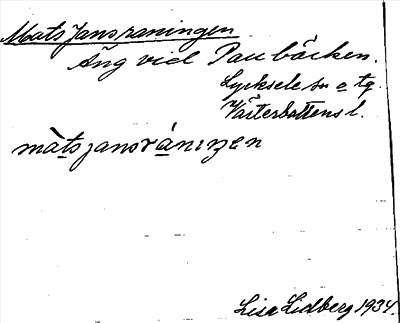 Mats Jansraningen
Äng vid Paubäcken.
Lycksele sn o. tg.
Västerbottens l.
màtsjansrániŋen
Lisa Lidberg 1934.